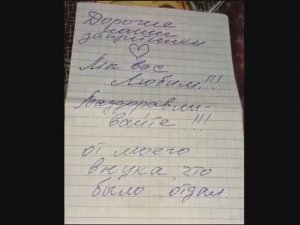 Дорогие
наши
защитники
Мы вас
Любим!!!
Выздоравли-
вайте!!!
от моего
внука, что
было отдал.